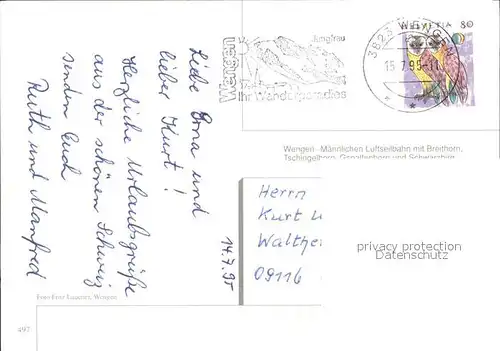 Liebe Erna und
lieber Kurt!
Herzliche Urlaubsgrüße
aus der schönen Schweiz
senden Euch
Ruth und Manfred
14.7.95
Wengen
Jungfrau
Ihr Wanderparadies
3823 WENGEN
15.7.95-11
HELVETIA 80
Wengen - Männlichen Luftseilbahn mit Breithorn,
Tschingelhorn, Gspaltenhorn und Schwarzbirg
Herrn
Kurt
Walther
09116
privacy protection
Datenschutz
Foto Fritz Lauener, Wengen
497